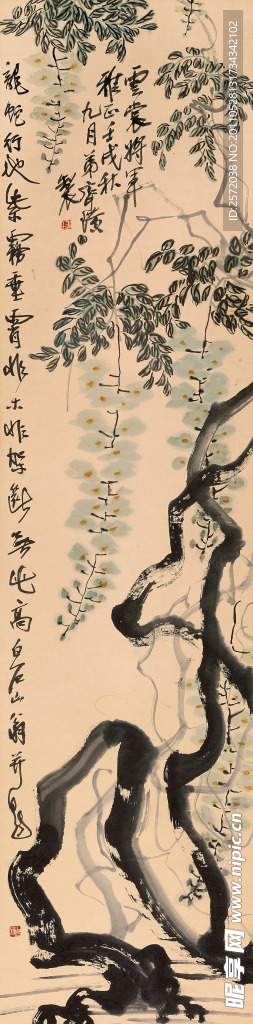 雲裳将軍
雅正壬戌秋
九月弟齊璜
製
龍蛇行地紫霧垂霄非卜非架斷無此高白石山翁并題
ID:2572038 NO:20110528131734342102
昵享网 www.nipic.cn